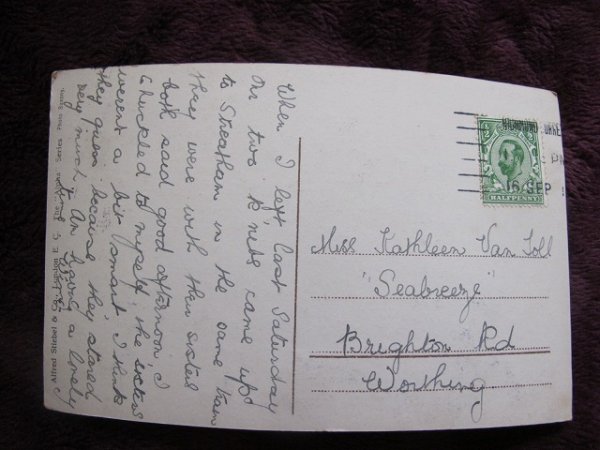 When I left last Saturday
Our two K nuts came up
to Streatham in the same tram
they were with their sisters
both said good afternoon I
Chuckled to myself, the sisters
werent a bit smart I think
they guess because they stared
very much. Am having a lovely
Alfred Stiebel & Co., London E.C. The "Alpha" Series
Miss Kathleen Van Toll
"Seabreeze"
Brighton Rd
Worthing
HALFPENNY
16 SEP